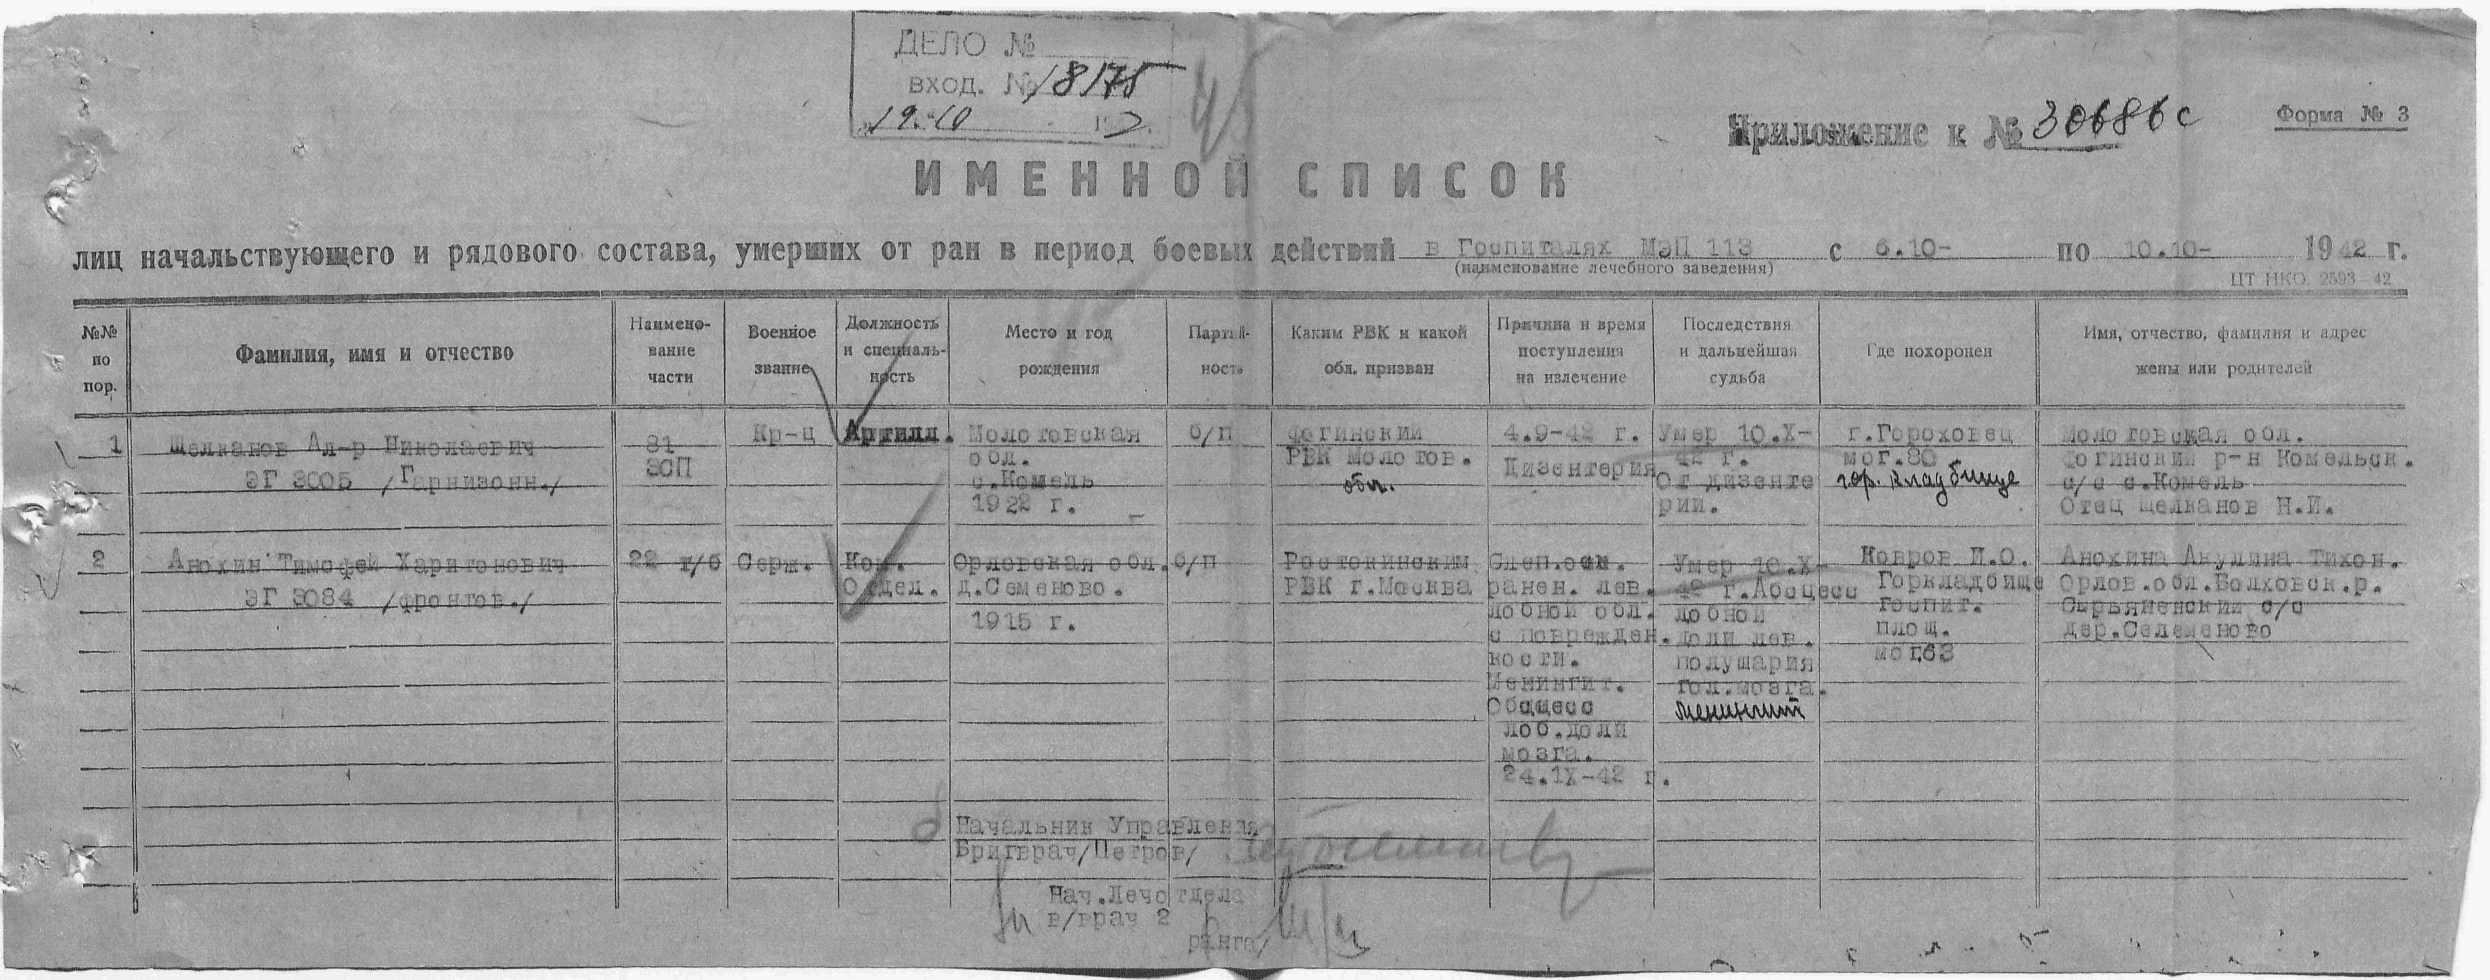 ДЕЛО №
ВХОД. № 18175
19.10
Приложение к № 30686с
Форма № 3
ИМЕННОЙ СПИСОК
лиц начальствующего и рядового состава, умерших от ран в период боевых действий в Госпиталях МЭП 113 с 6.10- по 10.10- 1942 г.
(наименование лечебного заведения)
ЦТ НКО. 2593—42
№№ по пор.
Фамилия, имя и отчество
Наимено-
вание
части
Военное
звание
Должность
и специаль-
ность
Место и год
рождения
Партий-
ность
Каким РВК и какой
обл. призван
Причина и время
поступления
на излечение
Последствия
и дальнейшая
судьба
Где похоронен
Имя, отчество, фамилия и адрес
жены или родителей
1
Щелканов Ал-р Николаевич
ЭГ 3005 /Гарнизонн./
81
ЗСП
Кр-ц
Артилл.
Молотовская
обл.
с.Комель
1922 г.
б/п
Фогинский
РВК Молотов.
обл.
4.9-42 г.
Дизентерия
Умер 10.X-
42 г.
От дизенте
рии.
г.Гороховец
мог.80
гор. кладбище
Молотовская обл.
Фогинский р-н Комельск.
с/с с.Комель
Отец Щелканов Н.И.
2
Анохин Тимофей Харитонович
ЭГ 3084 /фронтов./
22 т/б
Серж.
Ком.
Отдел.
Орловская обл.
д.Семеново.
1915 г.
б/п
Ростокинским
РВК г.Москва
Слеп.оск.
ранен. лев.
лобной обл.
с поврежден.
кости.
Менингит.
Обсцесс
лоб.доли
мозга.
24.IX-42 г.
Умер 10.X-
42 г.Абсцесс
лобной
доли лев.
полушария
гол.мозга.
менингит
Ковров И.О.
Горкладбище
Госпит.
площ.
мог.63
Анохина Акулина Тихон.
Орлов.обл.Болховск.р.
Сырьяненский с/с
дер.Селеменово
Начальник Управления
Бригврач/Петров/
Нач.Лечотдела
в/врач 2
ранга/